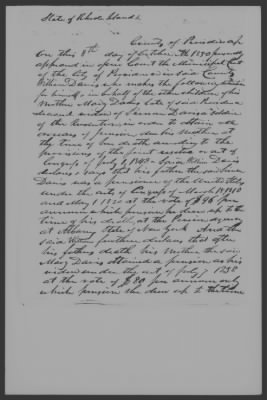 State of Rhode Island
County of Providence
On this 8th day of October 1850 personally
appeared in open Court the Municipal Court
of the City of Providence in said County
William Davis who makes the following
for himself & in behalf of the other children of his
Mother Mary Davis late of said Providence
deceased widow of Davis a soldier
of the Revolution in order to obtain the
arrears of pension due his Mother at
the time of her death according to the
provisions of the joint resolution of
Congress of July 1, 1848 William Davis
declares & says that his father the said
Davis was a pensioner of the United States
under the acts of Congress of March 18, 1818
and May 1 1820 at the rate of $96 per
annum which pension he drew up to the
time of his death at the Pension agency
at Albany State of New York And the
said William further declares that after
his fathers death his Mother the said
Mary Davis obtained a pension as his
widow under the act of July 7 1838
at the rate of $80 per annum only
which pension she drew up to the time